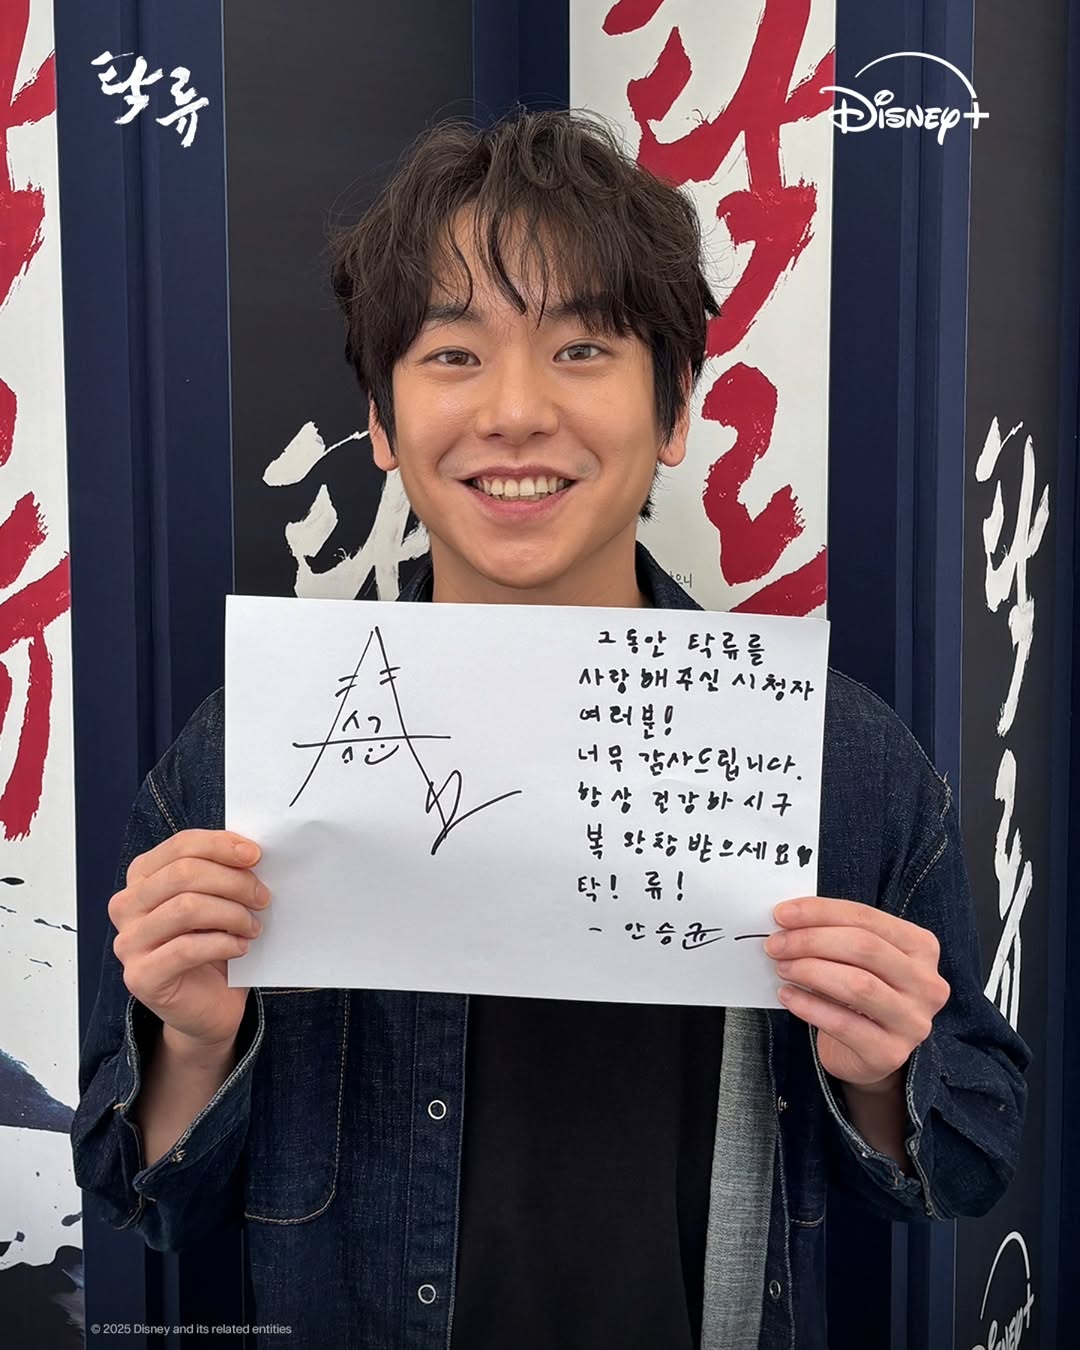 탁류
Disney+
탁류
탁
탁류
그동안 탁류를
사랑해주신 시청자
여러분!
너무 감사드립니다.
항상 건강하시구
복 왕창 받으세요
탁! 류!
- 안승균 -
Disney+
© 2025 Disney and its related entities